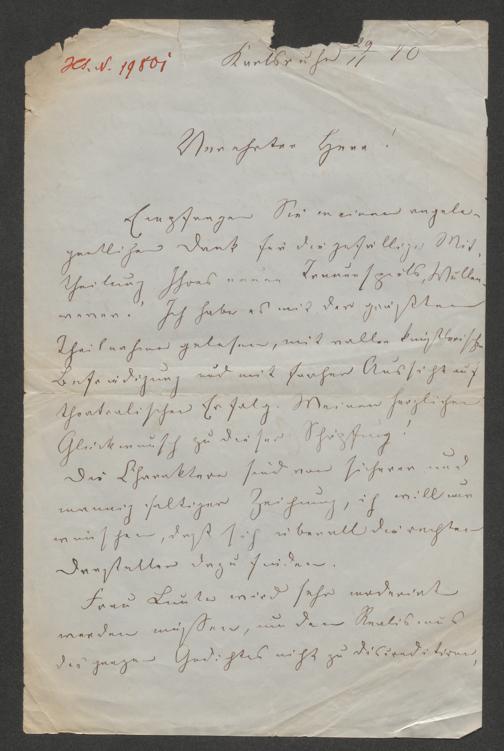 HS.N. 19801
Karlsruhe 29/11 40
Verehrter Herr!
Empfangen Sie meinen angele-
gentlichen Dank für die gefällige Mit-
theilung Ihres neuen Trauerspiels, Wullen-
wever! Ich habe es mit der größten
Theilnahme gelesen, mit voller künstlerischer
Befriedigung und mit froher Aussicht auf
theatralischen Erfolg. Meinen herzlichen
Glückwunsch zu dieser Schöpfung!
Die Charaktere sind von sicherer und
mannigfaltiger Zeichnung, ich will nur
wünschen, daß sich überall die rechten
Darsteller dazu finden.
Frau wird sehr moderirt
werden müssen, um den Realismus
des ganzen Gedichtes nicht zu discreditiren,